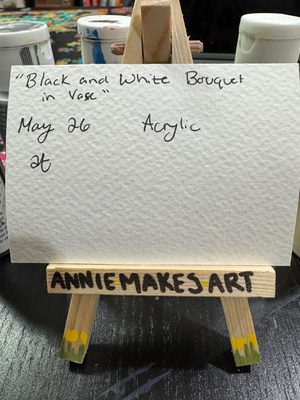 "Black and White Bouquet
in Vase"
May 26 Acrylic
ANNIE·MAKES·ART